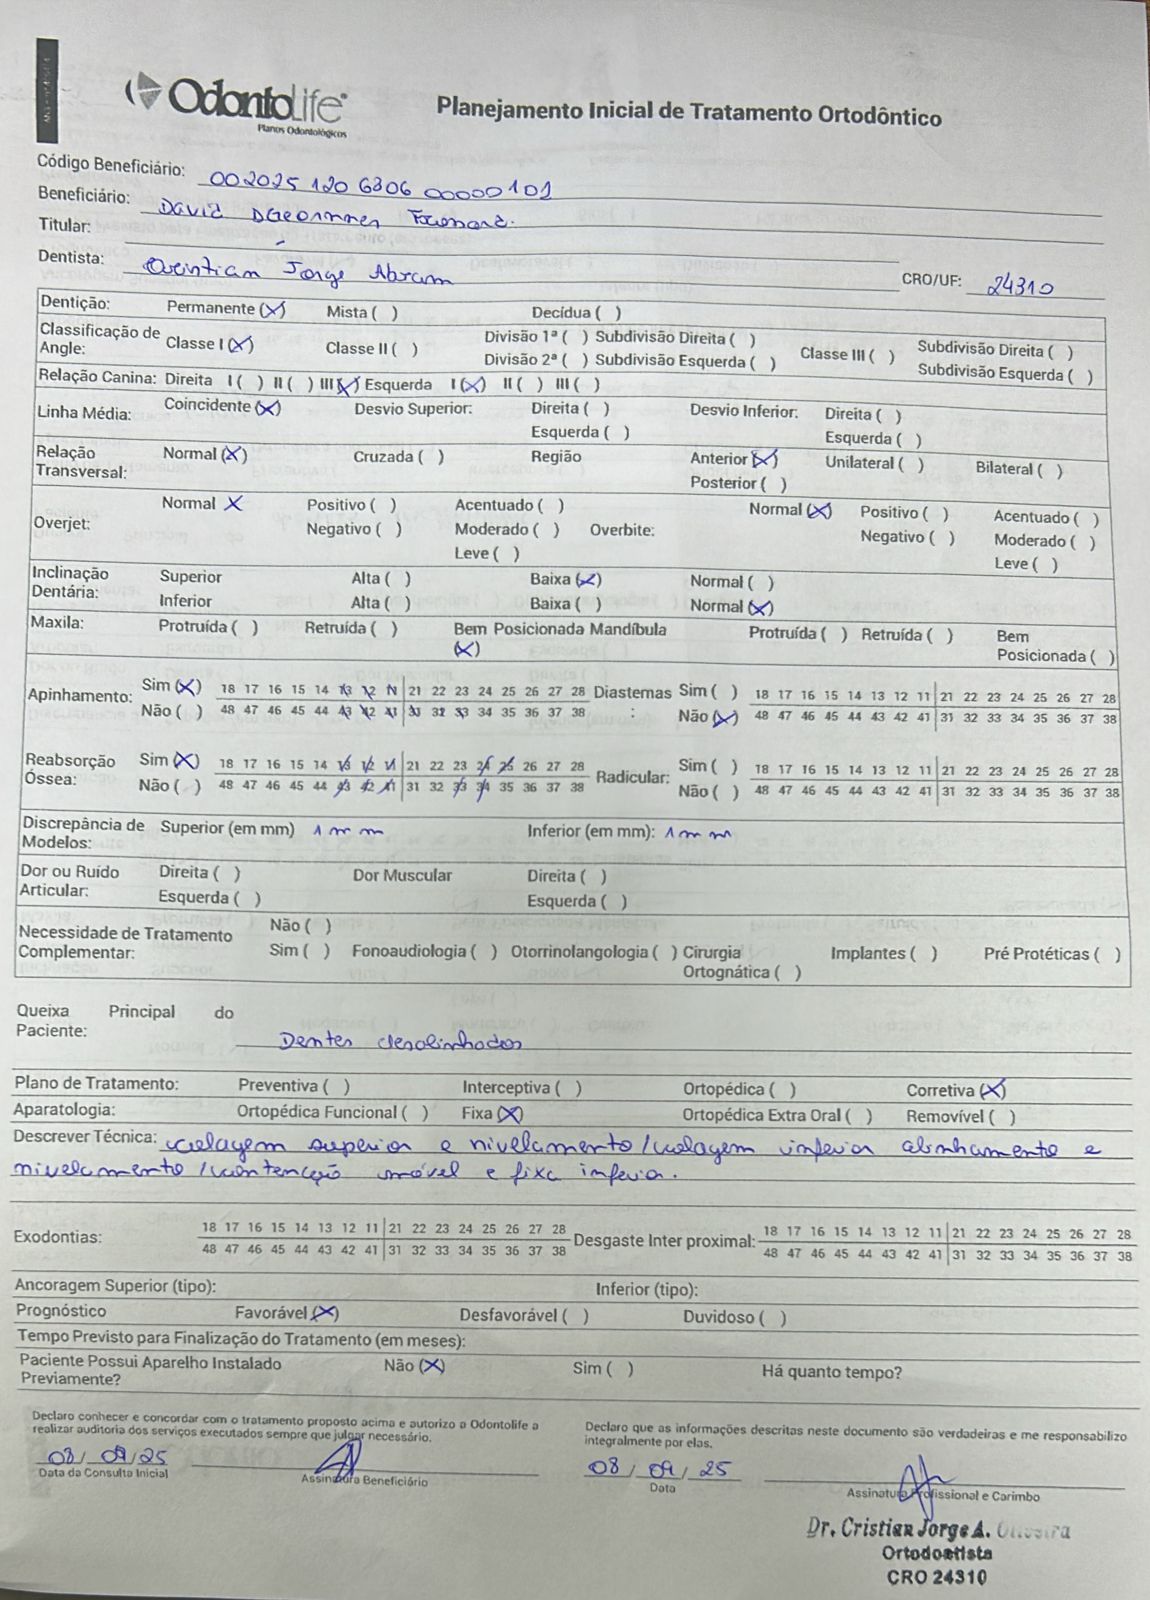 OdontoLife
Planos Odontológicos
Planejamento Inicial de Tratamento Ortodôntico
Código Beneficiário: 002025 120 6306 00000101
Beneficiário: David
Titular:
Dentista: Jorge Abram CRO/UF: 24310
Dentição: Permanente (X) Mista ( ) Decídua ( )
Classificação de Angle: Classe I (X) Classe II ( ) Divisão 1ª ( ) Subdivisão Direita ( ) Classe III ( ) Subdivisão Direita ( )
Divisão 2ª ( ) Subdivisão Esquerda ( ) Subdivisão Esquerda ( )
Relação Canina: Direita I ( ) II ( ) III (X) Esquerda I (X) II ( ) III ( )
Linha Média: Coincidente (X) Desvio Superior: Direita ( ) Desvio Inferior: Direita ( )
Esquerda ( ) Esquerda ( )
Relação Transversal: Normal (X) Cruzada ( ) Região Anterior (X) Unilateral ( ) Bilateral ( )
Posterior ( )
Overjet: Normal X Positivo ( ) Acentuado ( ) Overbite: Normal (X) Positivo ( ) Acentuado ( )
Negativo ( ) Moderado ( ) Negativo ( ) Moderado ( )
Leve ( ) Leve ( )
Inclinação Dentária: Superior Alta ( ) Baixa (X) Normal ( )
Inferior Alta ( ) Baixa ( ) Normal (X)
Maxila: Protruída ( ) Retruída ( ) Bem Posicionada (X) Mandíbula Protruída ( ) Retruída ( ) Bem Posicionada ( )
Apinhamento: Sim (X) 18 17 16 15 14 13 12 11 21 22 23 24 25 26 27 28 Diastemas: Sim ( ) 18 17 16 15 14 13 12 11 21 22 23 24 25 26 27 28
Não ( ) 48 47 46 45 44 43 42 41 31 32 33 34 35 36 37 38 Não (X) 48 47 46 45 44 43 42 41 31 32 33 34 35 36 37 38
Reabsorção Óssea: Sim (X) 18 17 16 15 14 13 12 11 21 22 23 24 25 26 27 28 Radicular: Sim ( ) 18 17 16 15 14 13 12 11 21 22 23 24 25 26 27 28
Não ( ) 48 47 46 45 44 43 42 41 31 32 33 34 35 36 37 38 Não ( ) 48 47 46 45 44 43 42 41 31 32 33 34 35 36 37 38
Discrepância de Modelos: Superior (em mm) 1 mm Inferior (em mm): 1 mm
Dor ou Ruído Articular: Direita ( ) Dor Muscular Direita ( )
Esquerda ( ) Esquerda ( )
Necessidade de Tratamento Complementar: Não ( )
Sim ( ) Fonoaudiologia ( ) Otorrinolangologia ( ) Cirurgia Ortognática ( ) Implantes ( ) Pré Protéticas ( )
Queixa Principal do
Paciente: Dentes desalinhados
Plano de Tratamento: Preventiva ( ) Interceptiva ( ) Ortopédica ( ) Corretiva (X)
Aparatologia: Ortopédica Funcional ( ) Fixa (X) Ortopédica Extra Oral ( ) Removível ( )
Descrever Técnica: colagem superior e nivelamento/colagem inferior alinhamento e
nivelamento/contenção móvel e fixa inferior.
Exodontias: 18 17 16 15 14 13 12 11 21 22 23 24 25 26 27 28 Desgaste Inter proximal: 18 17 16 15 14 13 12 11 21 22 23 24 25 26 27 28
48 47 46 45 44 43 42 41 31 32 33 34 35 36 37 38 48 47 46 45 44 43 42 41 31 32 33 34 35 36 37 38
Ancoragem Superior (tipo): Inferior (tipo):
Prognóstico Favorável (X) Desfavorável ( ) Duvidoso ( )
Tempo Previsto para Finalização do Tratamento (em meses):
Paciente Possui Aparelho Instalado Previamente? Não (X) Sim ( ) Há quanto tempo?
Declaro conhecer e concordar com o tratamento proposto acima e autorizo a Odontolife a
realizar auditoria dos serviços executados sempre que julgar necessário.
Declaro que as informações descritas neste documento são verdadeiras e me responsabilizo
integralmente por elas.
08/09/25
Data da Consulta Inicial Assinatura Beneficiário
08/09/25
Data Assinatura Profissional e Carimbo
Dr. Cristian Jorge A. Oliveira
Ortodontista
CRO 24310